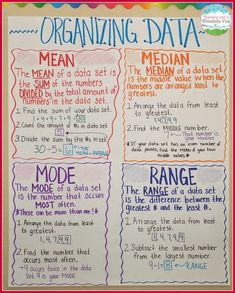 ORGANIZING DATA
MEAN
The MEAN of a data set
is the SUM of the numbers
DIVIDED by the total amount of
numbers in the data set.
1. Find the sum of your data set.
1+4+7+9+9=30
2. Count the amount of #s in data set.
3. Divide the sum by the #s in set.
30÷5=6
MEAN
MEDIAN
The MEDIAN of a data set is
the middle value when the
numbers are arranged least to
greatest.
1. Arrange the data from least
to greatest.
1,4,7,9,9
2. Find the MIDDLE number.
That number
is your median!
*If your data set has an even number of
data points, find the mean of your two
middle values.*
MODE
The MODE of a data set
is the number that occurs
MOST often.
*There can be more than one!*
1. Arrange the data from least
to greatest.
1,4,7,9,9
2. Find the number that
occurs most often.
→ 9 occurs twice in the data
set. 9 is your MODE
RANGE
The RANGE of a data set
is the difference between the
greatest & the least #.
1. Arrange the data from
least to greatest.
1,4,7,9,9
2. Subtract the smallest number
from the largest number.
9-1=8 RANGE